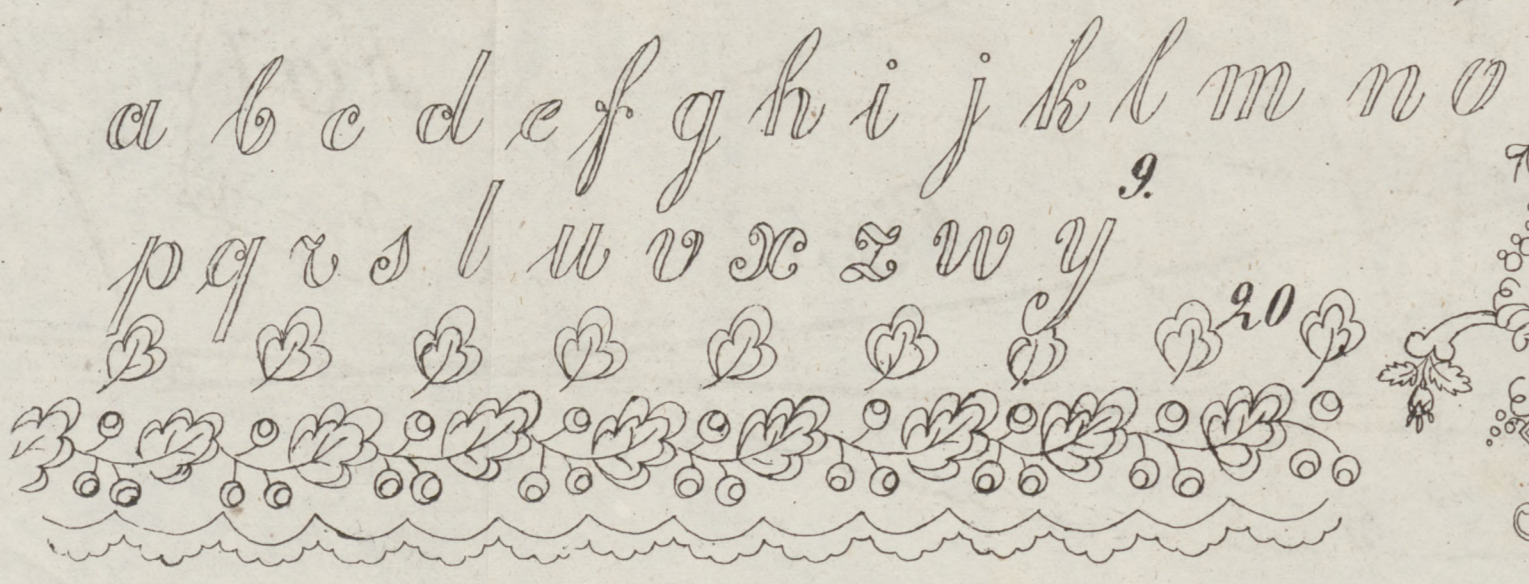 a b c d e f g h i j k l m n o
p q r s t u v x z w y 9.
20